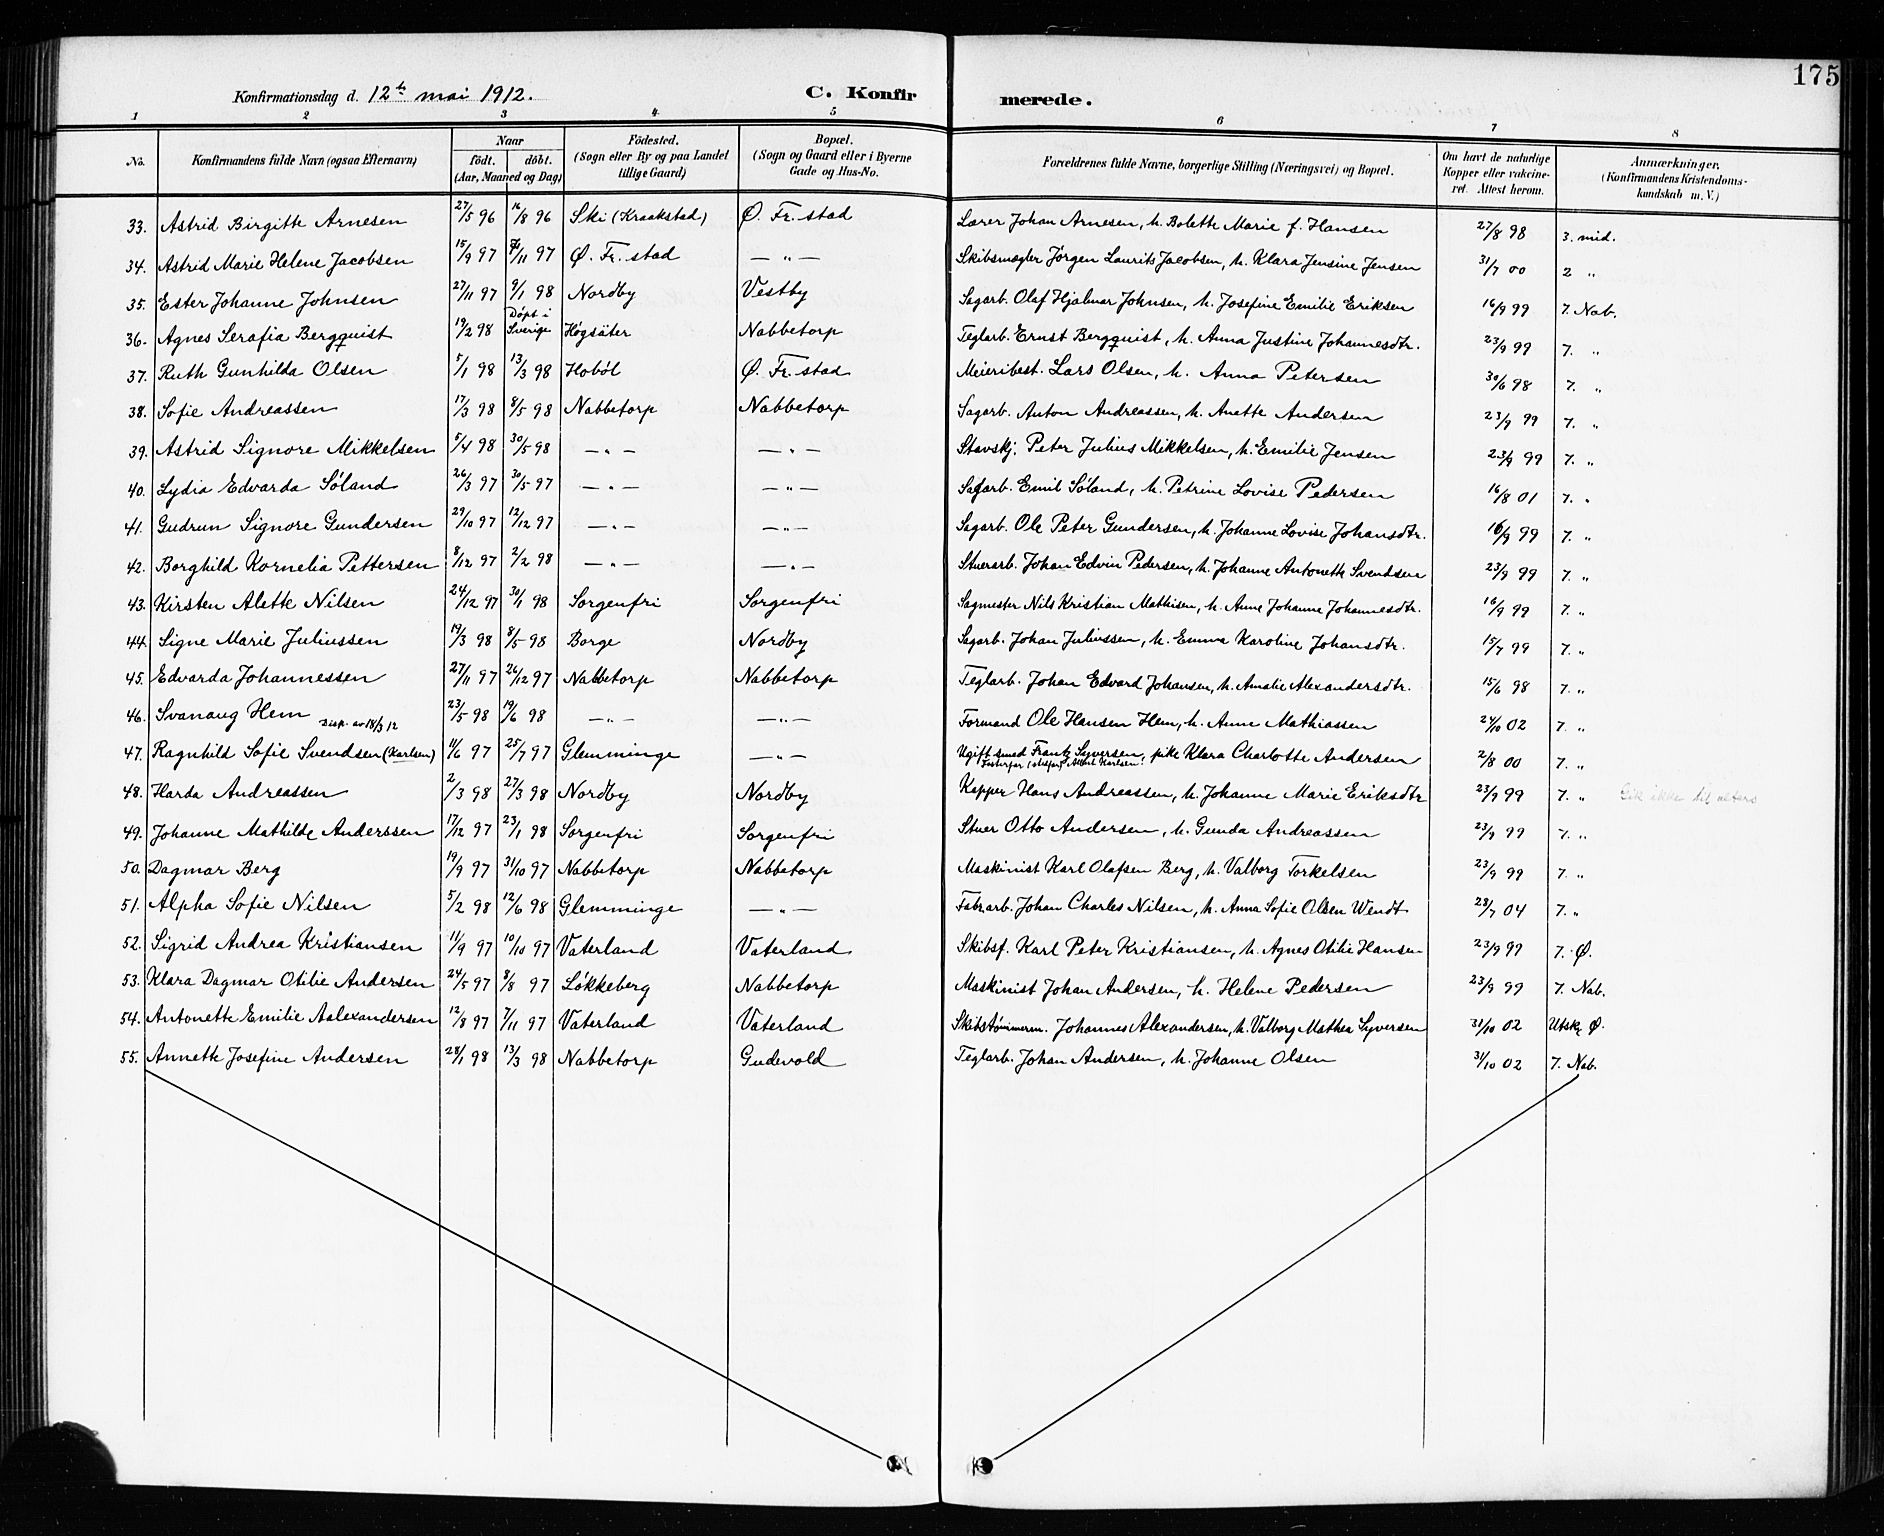 175
Konfirmationsdag d. 12te mai 1912.
C. Konfirmerede.
1 2 3 4 5 6 7 8
No. Konfirmandens fulde Navn (ogsaa Efternavn) Naar födt. döbt. (Aar, Maaned og Dag) Födested. (Sogn eller By og paa Landet tillige Gaard) Bopæl. (Sogn og Gaard eller i Byerne Gade og Hus-No. Forældrenes fulde Navne, borgerlige Stilling (Næringsvei) og Bopæl. Om havt de naturlige Kopper eller vakcineret. Attest herom. Anmærkninger. (Konfirmandens Kristendomskundskab m. V.)
33. Astrid Birgitte Arnesen 27/5 96 16/8 96 Ski (Kraakstad) Ø. Fr. stad Lærer Johan Arnesen, h. Bolette Marie f. Hansen 27/8 98 3. mid.
34. Astrid Marie Helene Jacobsen 15/9 97 /11 97 Ø. Fr. stad — " — Skibsmægler Jörgen Laurits Jacobsen, h. Klara Jensine Jensen 31/7 00 2 "
35. Ester Johanne Johnsen 27/11 97 9/1 98 Nordby Vestby Sagarb. Olaf Hjalmar Johnsen, h. Josefine Emilie Eriksen 16/9 99 7. Nab.
36. Agnes Serafia Bergquist 19/2 98 Döpt i Sverige Högsäter Nabbetorp Teglarb. Ernst Bergquist, h. Anna Justine Johannesdtr. 23/9 99 7. "
37. Ruth Gunhilda Olsen 5/1 98 13/3 98 Hoböl Ø. Fr. stad Meieribest. Lars Olsen, h. Anna Petersen 30/6 98 7. "
38. Sofie Andreassen 17/3 98 8/5 98 Nabbetorp Nabbetorp Sagarb. Anton Andreassen, h. Anette Andersen 23/9 99 7. "
39. Astrid Signore Mikkelsen 5/4 98 30/5 98 — " — — " — Stavskj. Peter Julius Mikkelsen, h. Emilie Jensen 23/9 99 7. "
40. Lydia Edvarda Söland 26/3 97 30/5 97 — " — — " — Sagarb. Emil Söland, h. Petrine Lovise Pedersen 16/8 01 7. "
41. Gudrun Signore Gundersen 29/10 97 12/12 97 — " — — " — Sagarb. Ole Peter Gundersen, h. Johanne Lovise Johansdtr. 16/9 99 7. "
42. Borghild Kornelia Pettersen 8/12 97 2/2 98 — " — — " — Stuerarb. Johan Edvin Pedersen, h. Johanne Antonette Svendsen 23/9 99 7. "
43. Kirsten Alette Nilsen 24/12 97 30/1 98 Sorgenfri Sorgenfri Sagmester Nils Kristian Mathisen, h. Anne Johanne Johannesdtr. 16/9 99 7. "
44. Signe Marie Juliussen 19/3 98 8/5 98 Borge Nordby Sagarb. Johan Juliussen, h. Emma Karoline Johansdtr. 15/7 99 7. "
45. Edvarda Johannessen 27/11 97 26/12 97 Nabbetorp Nabbetorp Teglarb. Johan Edvard Johansen, h. Amalie Alexandersdtr. 15/6 98 7. "
46. Svanaug Hem Disp. av 18/3 12 23/5 98 19/6 98 — " — — " — Formand Ole Hansen Hem, h. Anne Mathiassen 24/10 02 7. "
47. Ragnhild Sofie Svendsen (Karlsen) 11/6 97 25/7 97 Glemminge — " — Ugift smed Frantz Syversen, pike Klara Charlotte Andersen 2/8 00 7. "
Fosterfar (stefar) Albert Karlsen.
48. Harda Andreassen 2/3 98 27/3 98 Nordby Nordby Kapper Hans Andreassen, h. Johanne Marie Eriksdtr 23/9 99 7. " Gik ikke til alters
49. Johanne Mathilde Anderssen 17/12 97 23/1 98 Sorgenfri Sorgenfri Stuer Otto Andersen, h. Gunda Andreassen 23/9 99 7. "
50. Dagmar Berg 19/9 97 31/10 97 Nabbetorp Nabbetorp Maskinist Karl Olafsen Berg, h. Valborg Torkelsen 23/9 99 7. "
51. Alpha Sofie Nilsen 5/2 98 12/6 98 Glemminge — " — Fabrarb. Johan Charles Nilsen, h. Anna Sofie Olsen Wendt 28/7 04 7. "
52. Sigrid Andrea Kristiansen 11/9 97 10/10 97 Vaterland Vaterland Skibsf. Karl Peter Kristiansen, h. Agnes Otilie Hansen 23/9 99 7. Ø.
53. Klara Dagmar Otilie Andersen 24/5 97 8/8 97 Lökkeberg Nabbetorp Maskinist Johan Andersen, h. Helene Pedersen 23/9 99 7. Nab.
54. Antonette Emilie Aalexandersen 12/8 97 7/11 97 Vaterland Vaterland Skibstömmerm. Johannes Alexandersen, h. Valborg Mathea Syversen 31/10 02 Utsk. Ø.
55. Annette Josefine Andersen 28/1 98 13/3 98 Nabbetorp Gudevold Teglarb. Johan Andersen, h. Johanne Olsen 31/10 02 7. Nab.